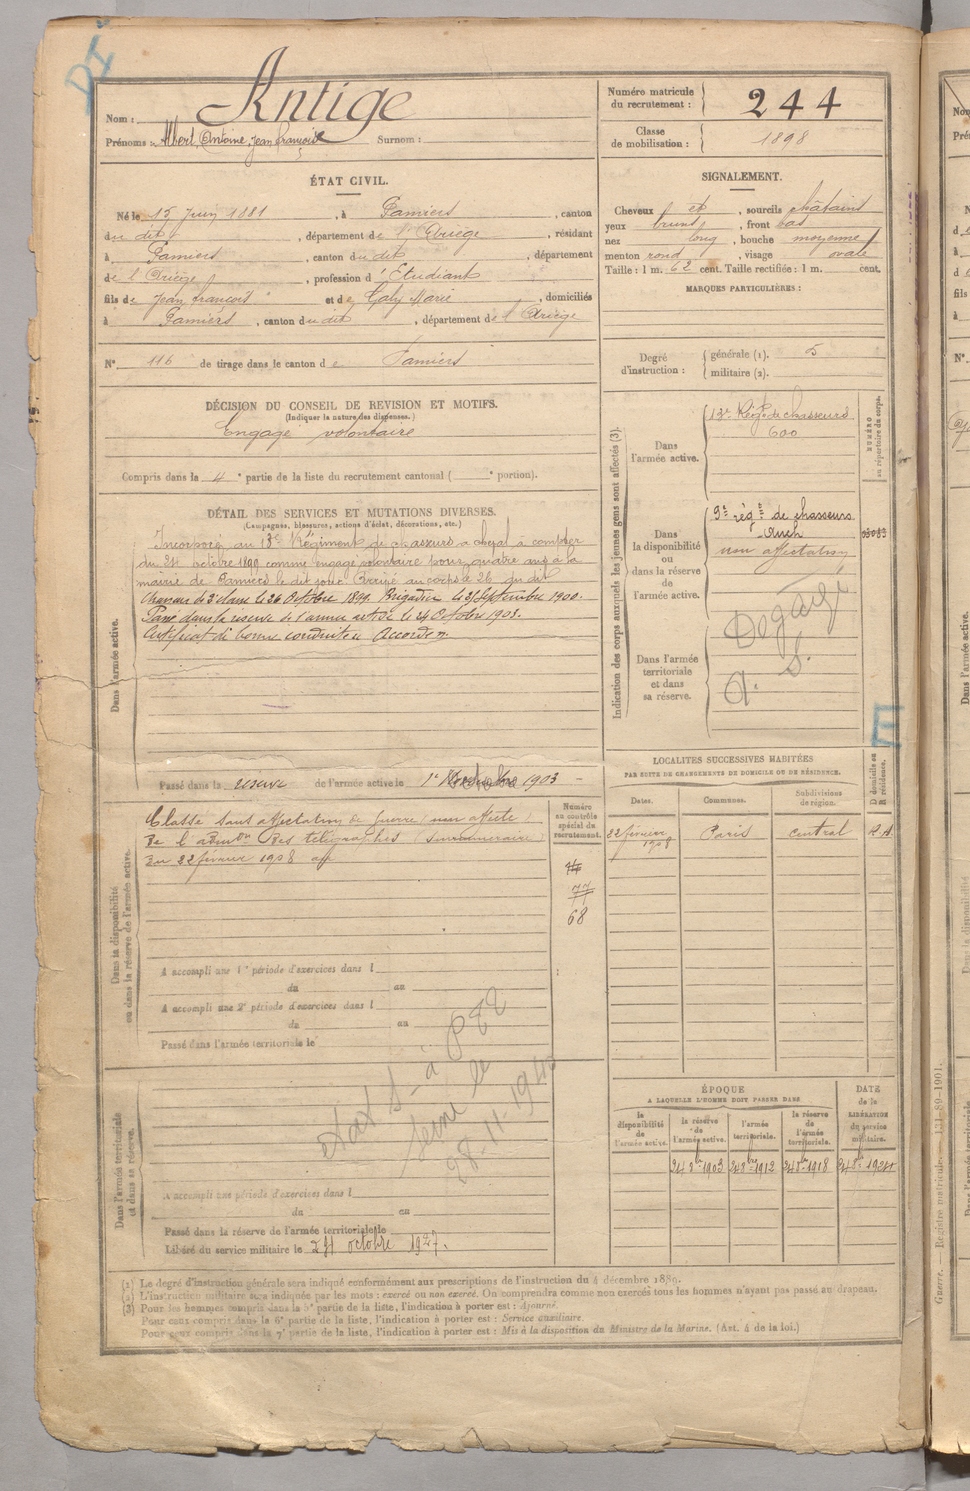 DI
Nom : Antige
Prénoms : Albert, Antoine, Jean françois Surnom :
Numéro matricule du recrutement : 244
Classe de mobilisation : 1898
ÉTAT CIVIL.
Né le 15 Juin 1881, à Pamiers, canton
du dit, département de l'Ariège, résidant
à Pamiers, canton du dit, département
de l'Ariège, profession d'Etudiant
fils de Jean françois et de Galy Marie, domiciliés
à Pamiers, canton du dit, département de l'Ariège
N° 116 de tirage dans le canton de Pamiers
SIGNALEMENT.
Cheveux et, sourcils châtains
yeux bruns, front bas
nez long, bouche moyenne
menton rond, visage ovale
Taille : 1 m. 62 cent. Taille rectifiée : 1 m. cent.
MARQUES PARTICULIÈRES :
Degré d'instruction : générale (1). 3
militaire (2).
DÉCISION DU CONSEIL DE REVISION ET MOTIFS.
(Indiquer la nature des dispenses.)
Engagé volontaire
Compris dans la 4e partie de la liste du recrutement cantonal ( e portion).
DÉTAIL DES SERVICES ET MUTATIONS DIVERSES.
(Campagnes, blessures, actions d'éclat, décorations, etc.)
Dans l'armée active.
Incorporé au 13e Régiment de chasseurs à cheval à compter
du 24 octobre 1899 comme engagé volontaire pour quatre ans à la
mairie de Pamiers le dit jour. Arrivé au corps le 26 du dit
Chasseur de 2e classe le 26 Octobre 1899. Brigadier le 21 Septembre 1900.
Passé dans la réserve de l'armée active le 24 Octobre 1903.
Certificat de bonne conduite Accordé.
Passé dans la réserve de l'armée active le 1903
Indication des corps auxquels les jeunes gens sont affectés (3).
NUMÉRO au répertoire du corps.
Dans l'armée active.
13e Régt de chasseurs
600
Dans la disponibilité ou dans la réserve de l'armée active.
9e régt de chasseurs
Auch
non affectation
Dans l'armée territoriale et dans sa réserve.
Dégagé
A. S.
E
Dans la disponibilité ou dans la réserve de l'armée active.
Classé sans affectation de guerre (non affecté)
De l'admon des télégraphes (surnuméraire)
Du 22 février 1908
Numéro au contrôle spécial du recrutement.
77
68
A accompli une 1e période d'exercices dans l
du au
A accompli une 2e période d'exercices dans l
du au
Passé dans l'armée territoriale le
LOCALITES SUCCESSIVES HABITÉES
PAR SUITE DE CHANGEMENTS DE DOMICILE OU DE RÉSIDENCE.
Dates. Communes. Subdivisions de région. D domicile ou R résidence.
22 février 1908 Paris central R.
Dans l'armée territoriale et dans sa réserve.
A accompli une période d'exercices dans l
du au
Passé dans la réserve de l'armée territoriale le
Libéré du service militaire le 24 octobre 1927.
ÉPOQUE
A LAQUELLE L'HOMME DOIT PASSER DANS
la disponibilité de l'armée active. la réserve de l'armée active. l'armée territoriale. la réserve de l'armée territoriale.
DATE de la LIBÉRATION du service militaire.
24 8bre 1903 24 8bre 1912 24 8bre 1918 24 8bre 1924
(1) Le degré d'instruction générale sera indiqué conformément aux prescriptions de l'instruction du 4 décembre 1889.
(2) L'instruction militaire sera indiquée par les mots : exercé ou non exercé. On comprendra comme non exercés tous les hommes n'ayant pas passé au drapeau.
(3) Pour les hommes compris dans la 5e partie de la liste, l'indication à porter est : Ajourné.
Pour ceux compris dans la 6e partie de la liste, l'indication à porter est : Service auxiliaire.
Pour ceux compris dans la 7e partie de la liste, l'indication à porter est : Mis à la disposition du Ministre de la Marine. (Art. 4 de la loi.)
Guerre. — Registre matricule — 131-89-1901.